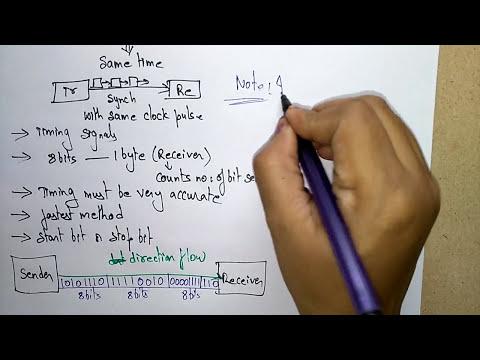 Same time
Tr
Re
Synch
with same clock pulse
→ Timing signals
→ 8bits — 1 byte (Receiver)
counts no: of bit se
→ Timing must be very accurate
→ fastest method
→ start bit n stop bit
direction flow
Sender
10101110 11110010 00001111110
Receiver
8bits 8bits 8bits
Note: